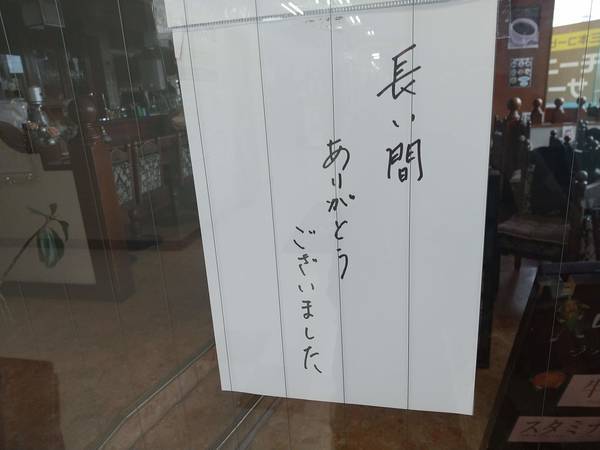 長い間
ありがとう
ございました、
スタミナ